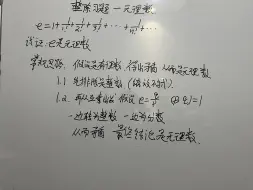 整除习题-无理数
e=1+1/1!+1/2!+1/3!+⋯+1/n!+⋯
试证:e是无理数
常规思路. 假设是有理数,得出矛盾 从而是无理数
1.1 先排除是整数
1.2. 再 假设 e=p/q (p,q)=1
一边为整数 一边为分数
从而矛盾 最终结论是无理数.